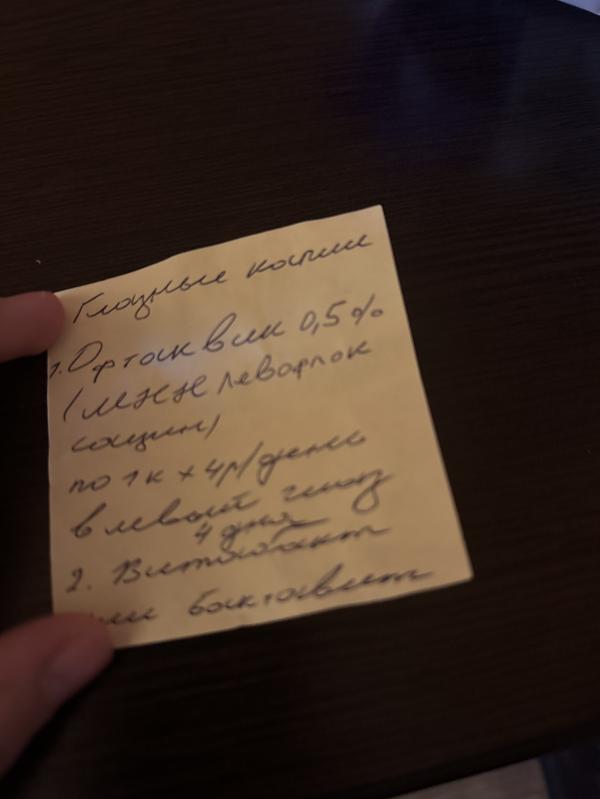 Глазные капли
1. Офтаквик 0,5%
(МНН левофлок
сацин)
по 1к х 4р/день
в левый глаз
4 дня
2. Витабакт
или бактавит